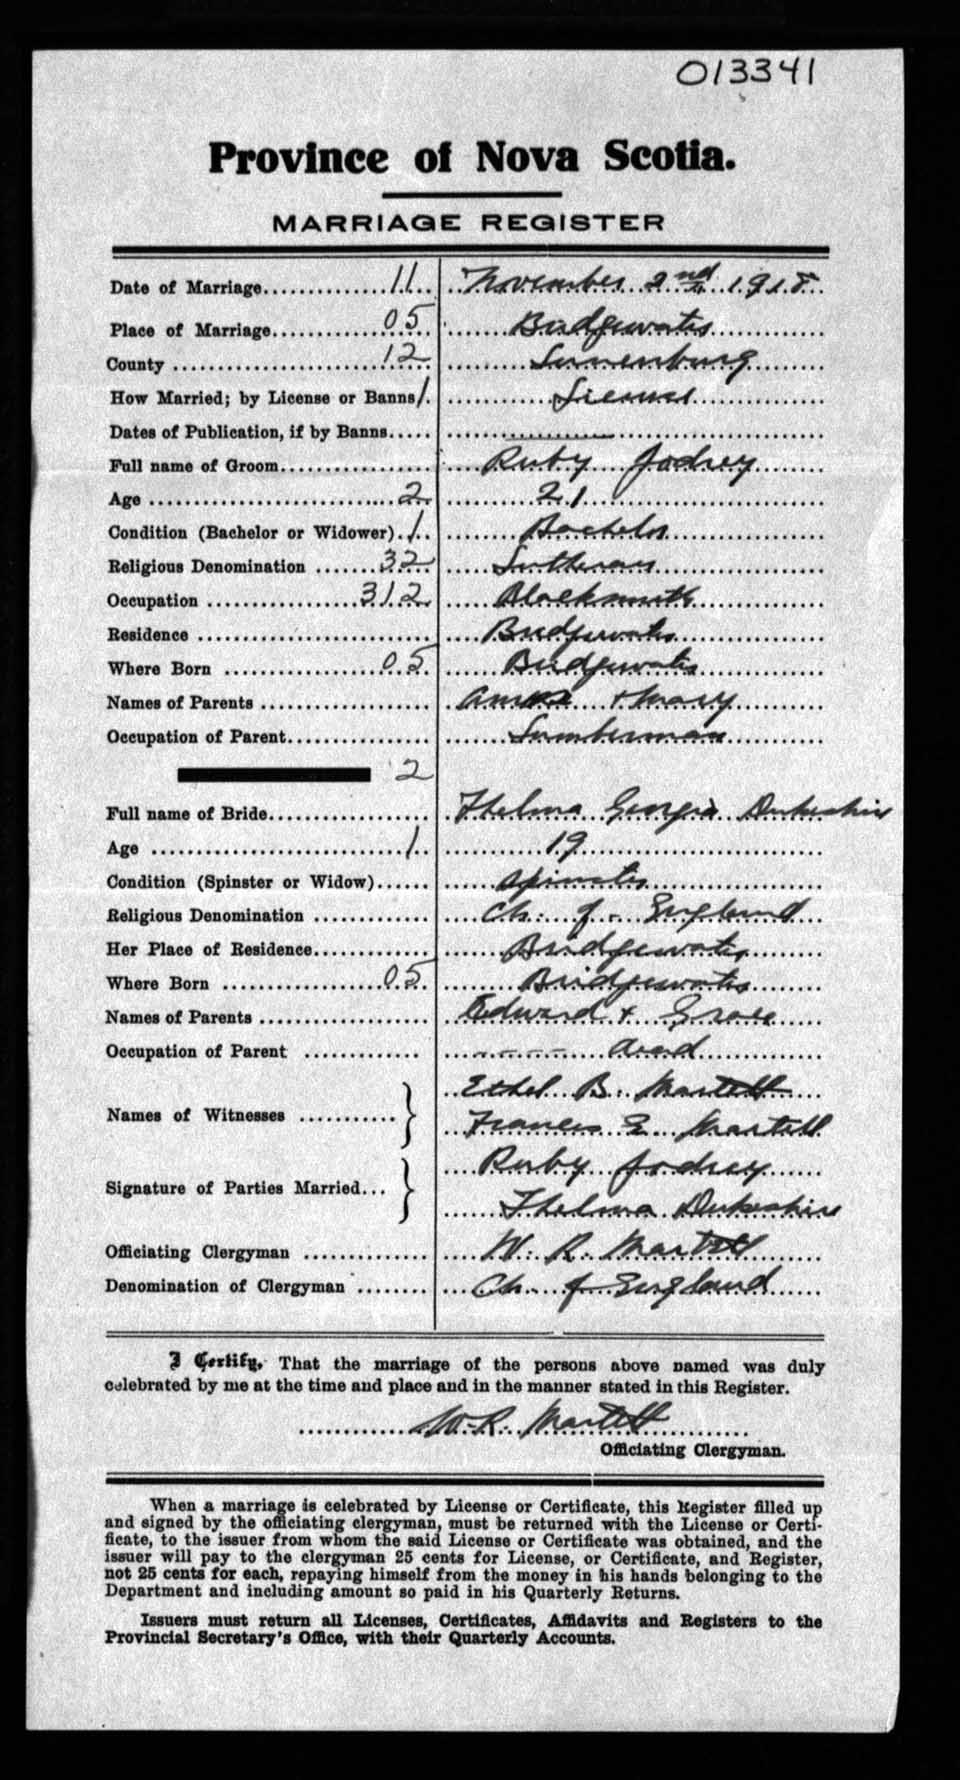 013341
Province of Nova Scotia.
MARRIAGE REGISTER
Date of Marriage 11 November 2nd 1918
Place of Marriage 05 Bridgewater
County 12 Lunenburg
How Married; by License or Banns 1 License
Dates of Publication, if by Banns
Full name of Groom Ruby Jodrey
Age 2 21
Condition (Bachelor or Widower) 1 Bachelor
Religious Denomination 32 Lutheran
Occupation 312 Blacksmith
Residence Bridgewater
Where Born 05 Bridgewater
Names of Parents Amos + Mary
Occupation of Parent Lumberman
2
Full name of Bride Thelma Georgia Dukeshire
Age 1 19
Condition (Spinster or Widow) Spinster
Religious Denomination Ch. of England
Her Place of Residence Bridgewater
Where Born 05 Bridgewater
Names of Parents Edward + Grace
Occupation of Parent dead
Ethel B. Martell
Names of Witnesses
Frances E. Martell
Ruby Jodrey
Signature of Parties Married
Thelma Dukeshire
Officiating Clergyman W. R. Martell
Denomination of Clergyman Ch. of England
I Certify, That the marriage of the persons above named was duly
celebrated by me at the time and place and in the manner stated in this Register.
W. R. Martell
Officiating Clergyman.
When a marriage is celebrated by License or Certificate, this Register filled up
and signed by the officiating clergyman, must be returned with the License or Certi-
ficate, to the issuer from whom the said License or Certificate was obtained, and the
issuer will pay to the clergyman 25 cents for License, or Certificate, and Register,
not 25 cents for each, repaying himself from the money in his hands belonging to the
Department and including amount so paid in his Quarterly Returns.
Issuers must return all Licenses, Certificates, Affidavits and Registers to the
Provincial Secretary's Office, with their Quarterly Accounts.